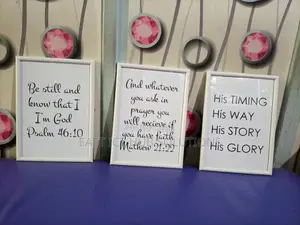 Be still and
know that I
I'm God
Psalm 46:10
And whatever
you ask in
prayer you
will recieve if
you have faith
Mathew 21:22
His TIMING
His WAY
His STORY
His GLORY